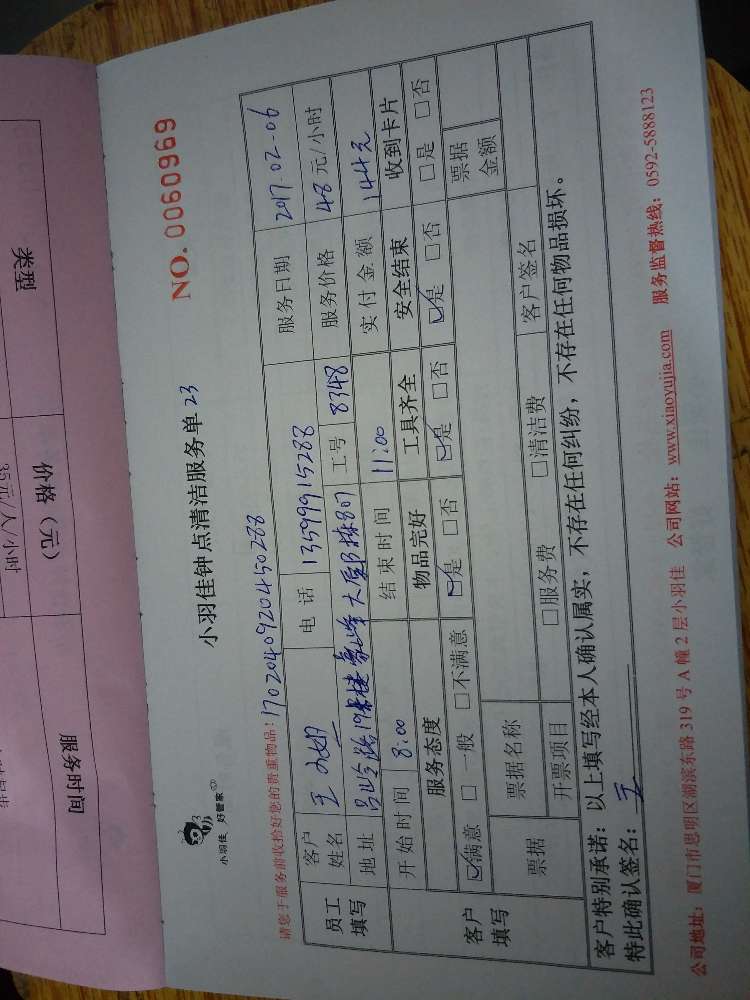 类型
价格（元）
服务时间
35元/人/小时
NO. 0060969
小羽佳钟点清洁服务单 23
小羽佳 好管家
请您于服务前收拾好您的贵重物品！170204092040450288
员工填写
客户姓名 王 电话 13599915288 服务日期 2017.02.06
地址 吕岭路 大厦 807 工号 8348 服务价格 48 元/小时
开始时间 8:00 结束时间 11:00 实付金额 144元
客户填写
服务态度 物品完好 工具齐全 安全结束 收到卡片
☑满意 □一般 □不满意 ☑是 □否 ☑是 □否 ☑是 □否 □是 □否
票据 票据名称 票据金额
开票项目 □服务费 □清洁费 客户签名
客户特别承诺：以上填写经本人确认属实，不存在任何纠纷，不存在任何物品损坏。
特此确认签名：王
公司地址：厦门市思明区湖滨东路 319 号 A 幢 2 层小羽佳 公司网站：www.xiaoyujia.com 服务监督热线：0592-5888123